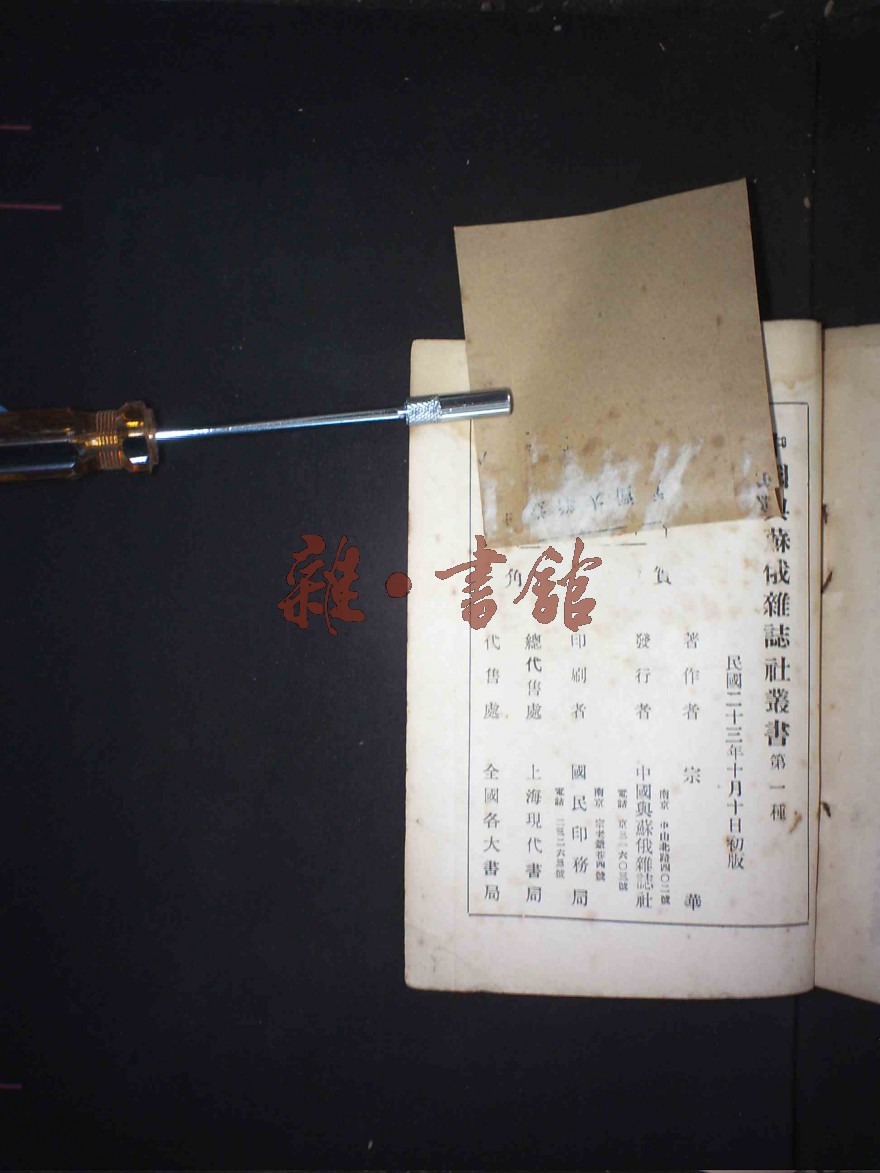 中國與蘇俄雜誌社叢書 第一種
民國二十三年十月十日初版
著作者 宗華
南京 中山北路四〇二號
發行者 中國與蘇俄雜誌社
電話 京三一六〇三號
印刷者 國民印務局
南京 宗老爺巷四號
電話 二三二六五號
總代售處 上海現代書局
代售處 全國各大書局
實
角
雜·書館